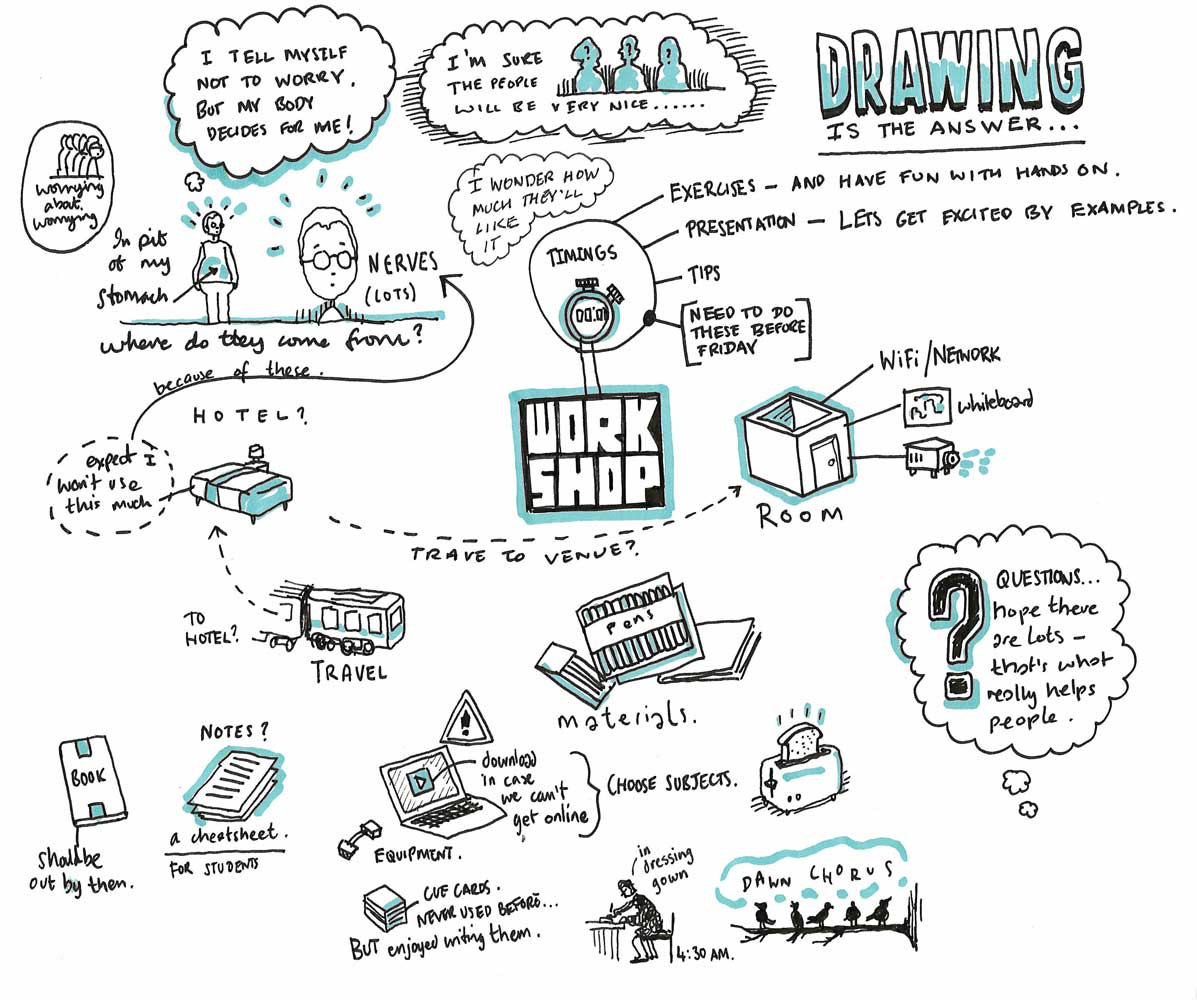 I TELL MYSELF
NOT TO WORRY.
BUT MY BODY
DECIDES FOR ME!
I'M SURE
THE PEOPLE
WILL BE VERY NICE......
? ? ?
DRAWING
IS THE ANSWER...
worrying
about.
worrying
I WONDER HOW
MUCH THEY'LL
LIKE
IT
In pits
of my
stomach
NERVES
(LOTS)
where do they come from?
because of these.
TIMINGS
00:01
EXERCISES — AND HAVE FUN WITH HANDS ON.
PRESENTATION — LETS GET EXCITED BY EXAMPLES.
TIPS
NEED TO DO
THESE BEFORE
FRIDAY
WORK
SHOP.
WiFi/NETWORK
whiteboard
ROOM
HOTEL?
expect I
won't use
this much
TRAVE TO VENUE?
TO
HOTEL?
TRAVEL
pens
materials.
?
QUESTIONS...
hope there
are lots –
that's what
really helps
people.
BOOK
Should be
out by then.
NOTES?
a cheatsheet.
FOR STUDENTS
!
download
in case
we can't
get online
CHOOSE SUBJECTS.
EQUIPMENT.
CUE CARDS.
NEVER USED BEFORE...
BUT enjoyed writing them.
in
dressing
gown
4:30 AM.
DAWN CHORUS